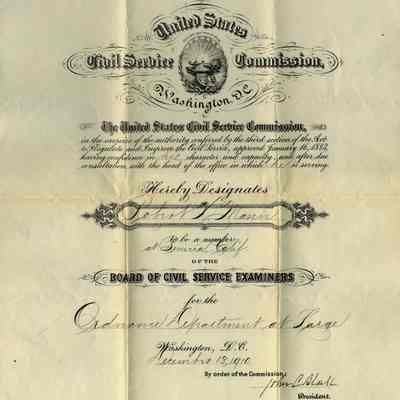 United States
Civil Service Commission,
Washington, D.C.
The United States Civil Service Commission,
in the exercise of the authority conferred by the third section of the Act
to Regulate and Improve the Civil Service, approved January 16, 1883,
having confidence in his character and capacity, and after due
consultation with the head of the office in which he is serving,
Hereby Designates
Robert
to be a member
at Benicia, Calif
OF THE
BOARD OF CIVIL SERVICE EXAMINERS
for the
Ordnance Department at Large
Washington, D.C.
December 13, 1910.
By order of the Commission:
John C. Black
President.